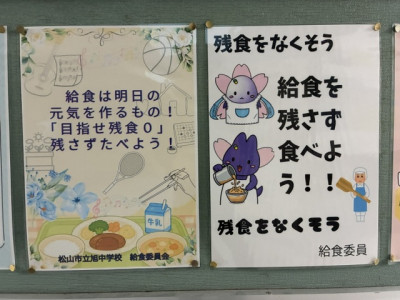 給食は明日の
元気を作るもの！
「目指せ残食０」
残さずたべよう！
牛乳
松山市立旭中学校　給食委員会
残食をなくそう
給食を
残さず
食べよ
う！！
残食をなくそう
給食委員